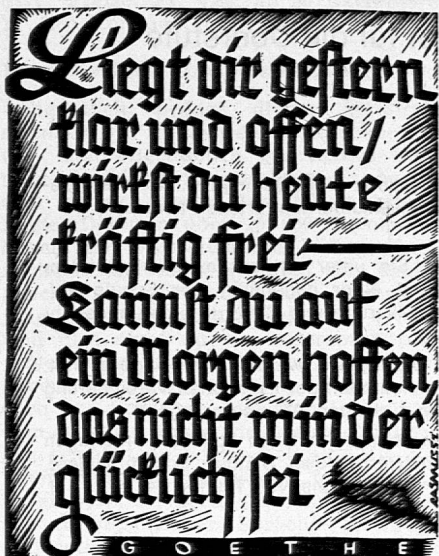 Liegt dir gestern
klar und offen/
wirkst du heute
kräftig frei—
Kannst du auf
ein Morgen hoffen,
das nicht minder
glücklich sei
GOETHE